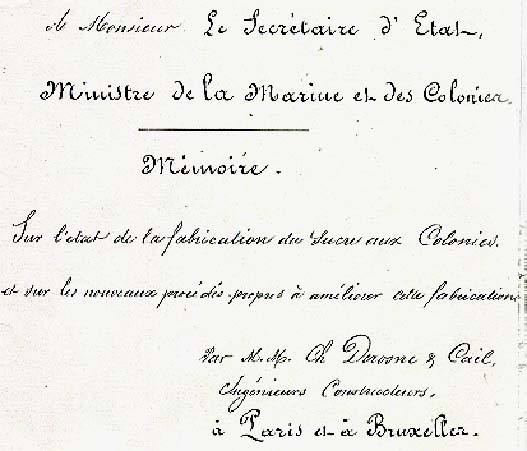 A Monsieur Le Secrétaire d'Etat,
Ministre de la Marine et des Colonies.
Mémoire.
Sur l'état de la fabrication du Sucre aux Colonies.
et sur les nouveaux procédés propres à améliorer cette fabrication
Par M.M. Ch Derosne & Cail,
Ingénieurs Constructeurs,
à Paris et à Bruxelles.